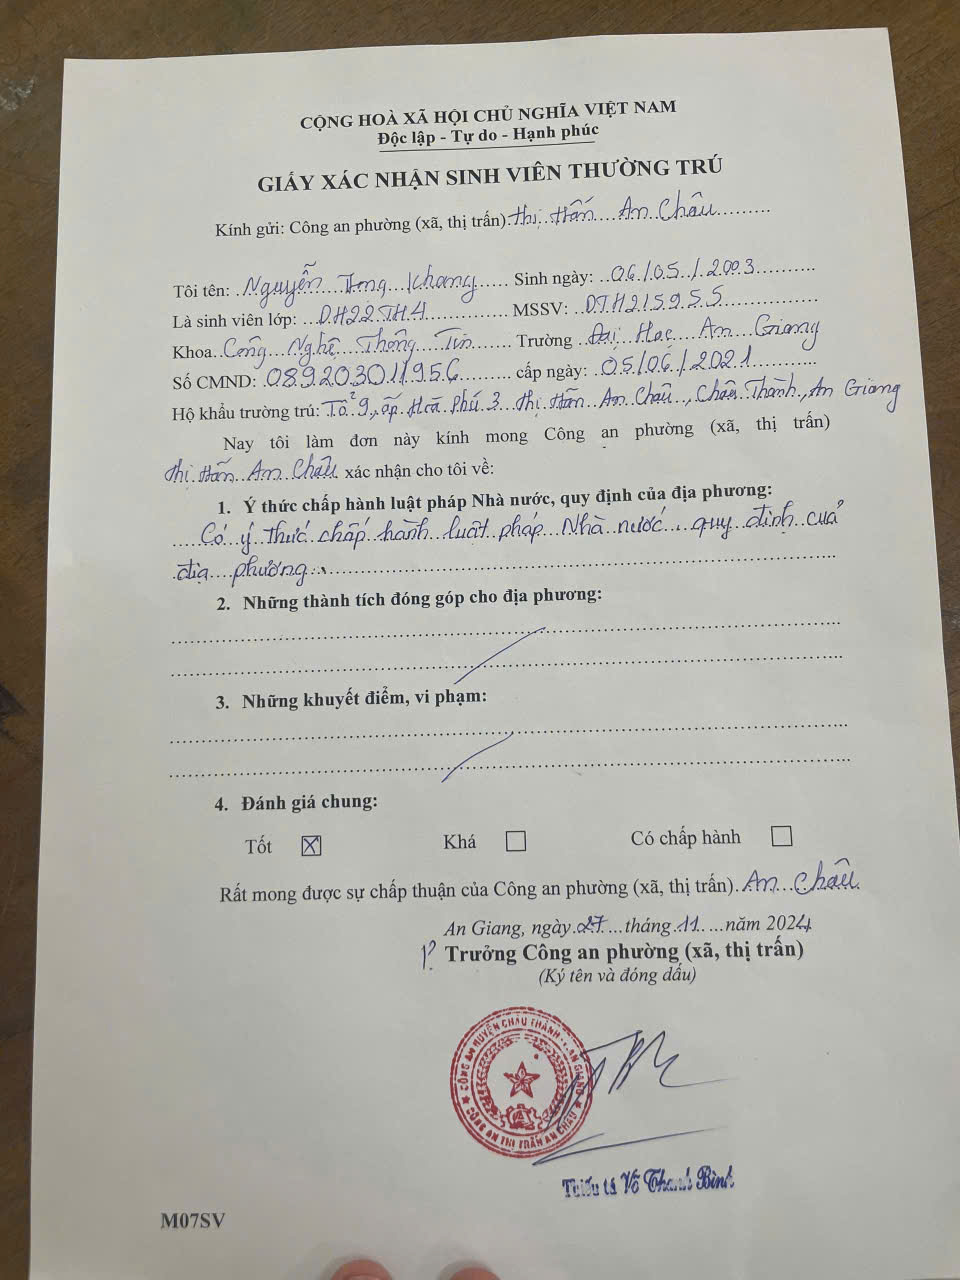 CỘNG HOÀ XÃ HỘI CHỦ NGHĨA VIỆT NAM
Độc lập - Tự do - Hạnh phúc
GIẤY XÁC NHẬN SINH VIÊN THƯỜNG TRÚ
Kính gửi: Công an phường (xã, thị trấn) Thị Trấn An Châu
Tôi tên: Nguyễn Trọng Khang Sinh ngày: 06/05/2003
Là sinh viên lớp: DH22TH4 MSSV: DTH215955
Khoa Công Nghệ Thông Tin Trường Đại Học An Giang
Số CMND: 089203011956 cấp ngày: 05/06/2021
Hộ khẩu trường trú: Tổ 9, ấp Hoà Phú 3 Thị Trấn An Châu, Châu Thành, An Giang
Nay tôi làm đơn này kính mong Công an phường (xã, thị trấn)
Thị Trấn An Châu xác nhận cho tôi về:
1. Ý thức chấp hành luật pháp Nhà nước, quy định của địa phương:
Có ý thức chấp hành luật pháp Nhà nước, quy định của
địa phương.
2. Những thành tích đóng góp cho địa phương:
3. Những khuyết điểm, vi phạm:
4. Đánh giá chung:
Tốt Khá Có chấp hành
Rất mong được sự chấp thuận của Công an phường (xã, thị trấn) An Châu
An Giang, ngày 27 tháng 11 năm 2024
Trưởng Công an phường (xã, thị trấn)
(Ký tên và đóng dấu)
CÔNG AN HUYỆN CHÂU THÀNH - T. AN GIANG
CÔNG AN THỊ TRẤN AN CHÂU
Thiếu tá Võ Thanh Bình
M07SV